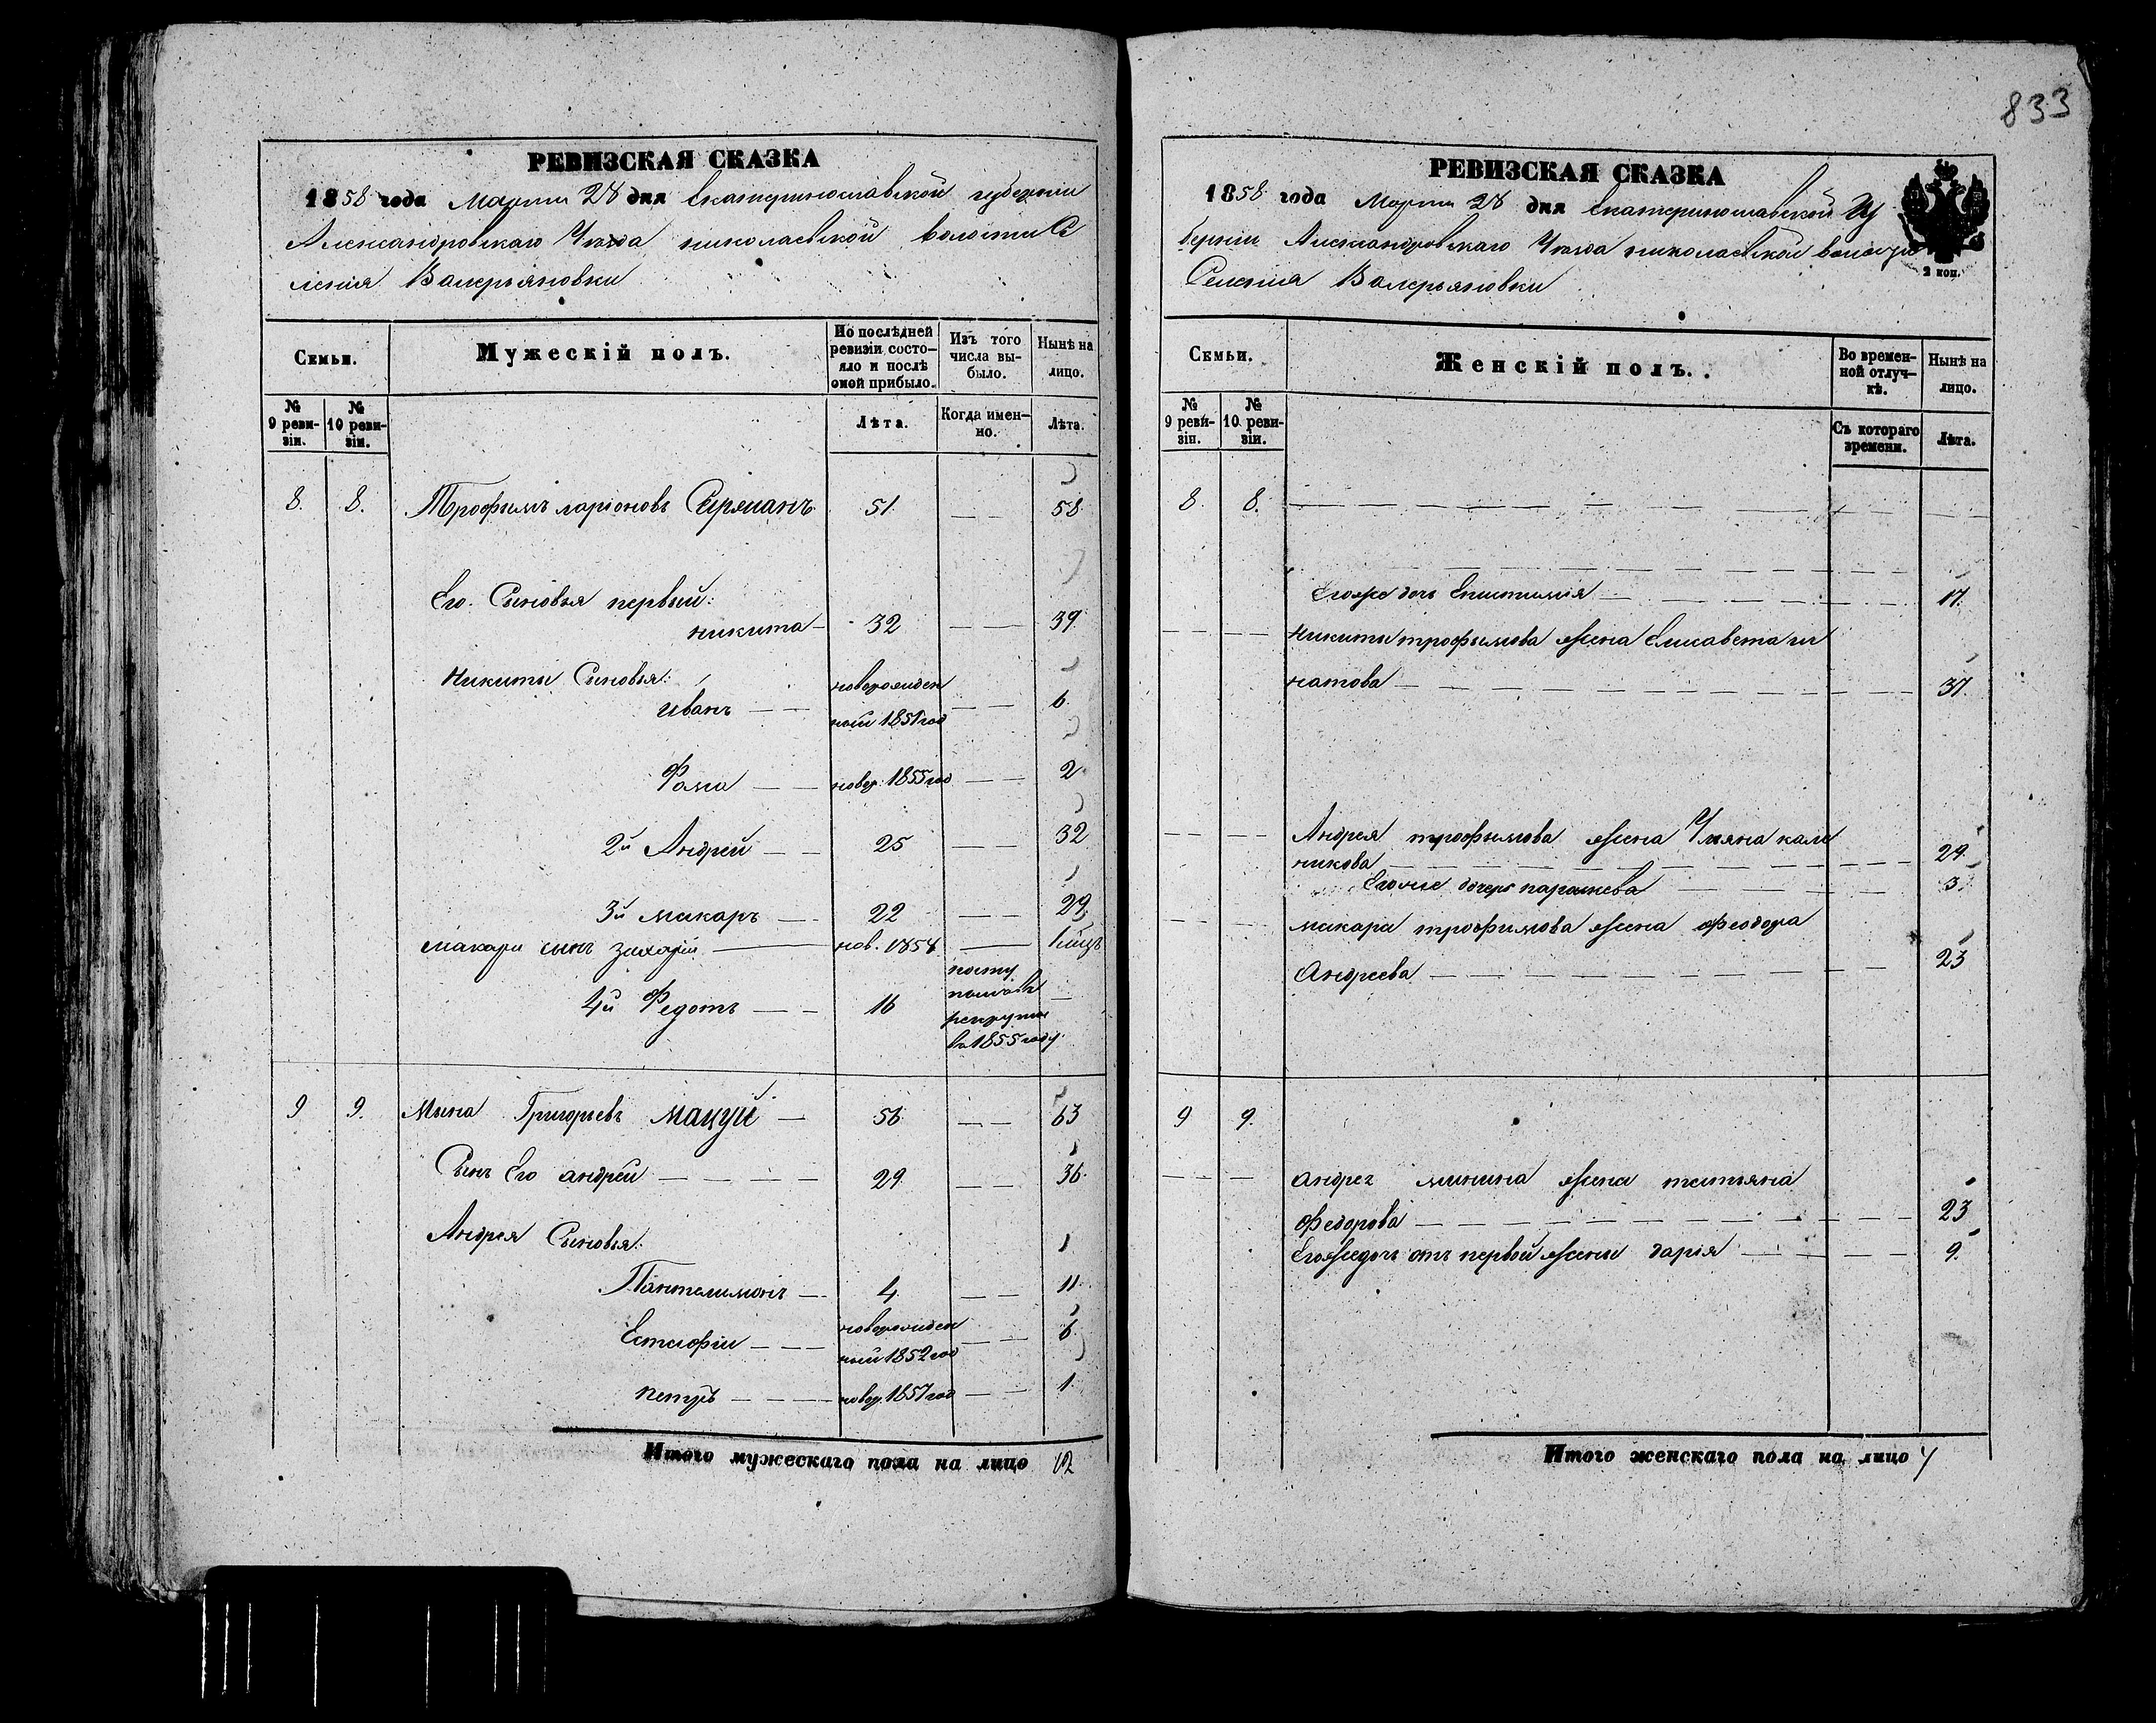 833
РЕВИЗСКАЯ СКАЗКА
1858 года Марта 28 дня Екатеринославской губернии
Александровскаго Уѣзда николаевской волости Се
ления Валерьяновки
Семьи.
Мужескій полъ.
По послѣдней ревизіи состояло и послѣ оной прибыло.
Изъ того числа выбыло.
Нынѣ на лицо.
№ 9 ревизіи.
№ 10 ревизіи.
Лѣта.
Когда именно.
Лѣта.
8. 8. Трофимъ ларіоновъ 51 — — 58
Его Сыновья первый:
никита — 32 — — 39
Никиты Сыновья:
новорожден
иванъ — — — — 6.
ный 1851 год
Фома — — новор. 1855 год — — 2
2й Андрей — — 25 — — 32
3й макаръ — — 22 — — 29
макара сынъ захарій — нов. 1858 — 1 мѣцъ
4й Федотъ — — 16
рекруты
въ 1855 году
9 9. Мина Григорьевъ мацуй — 56 — — 63
Сынъ Его андрей — — — — 29 — — 36
Андрея Сыновья:
Пантелимонъ — 4. — — 11
новорожден
Естафій — — — — — 6
ный 1852 год
петръ — — — новор. 1857 год — — 1
Итого мужескаго пола на лицо 12
РЕВИЗСКАЯ СКАЗКА
1858 года Марта 28 дня Екатеринославской Гу
берніи Александровскаго Уѣзда николаевской волости
Селения Валерьяновки
2 коп.
Семьи.
Женскій полъ.
Во временной отлучкѣ.
Нынѣ на лицо.
№ 9 ревизіи.
№ 10 ревизіи.
Съ котораго времени.
Лѣта.
8 8.
Егоже дочь Епистимія — 17.
Никиты трофимова жена Елисавета иг
натова — 37.
Андрея трофимова жена Уляна кале
никова — 29.
Егоже дочерь паражева — 3
макара трофимова жена феодора
Андреева — 23
9 9.
андрея минина жена татьяна
Федорова — 23
Егоже дочь отъ первой жены дарія — 9.
Итого женскаго пола на лицо 7